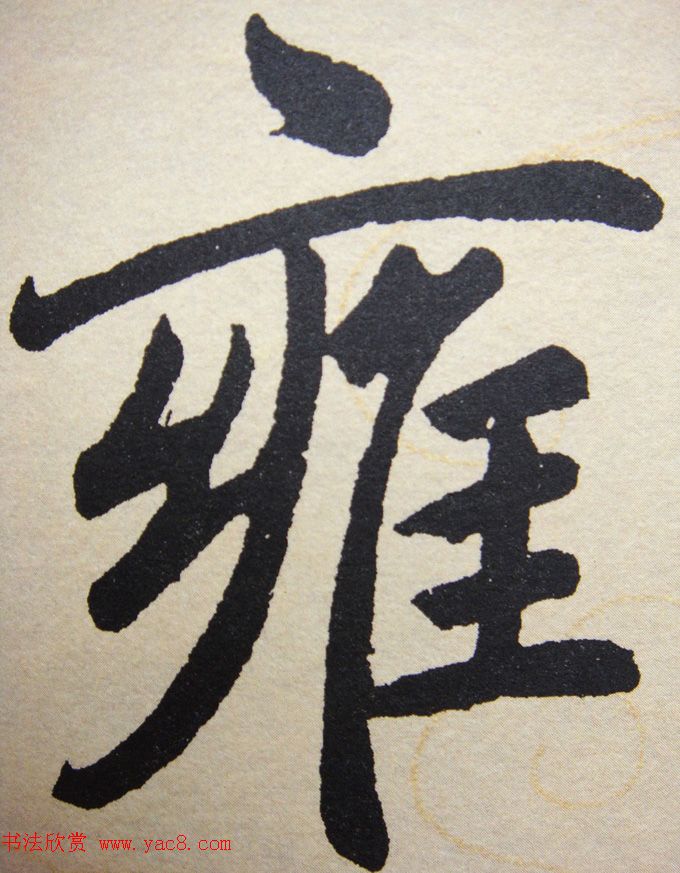 雍
书法欣赏 www.yac8.com